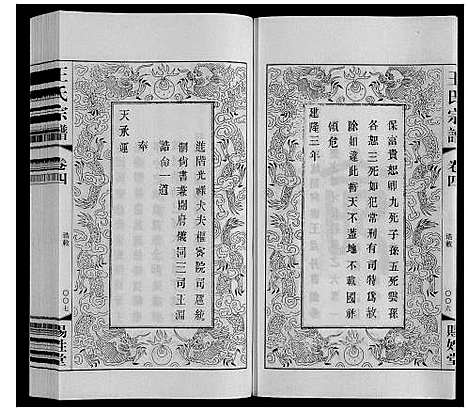 王氏宗譜
卷四
誥敕
〇〇六
賜姓堂
保富貴恕卿九死子孫五死雲孫
各恕三死如犯常刑有司特為赦
除如違此暫天不蓋地不載國祚
傾危
建隆三年
進階光祿大夫權密院司
統
制尚書兼開府儀同三司王淵
誥命一道
奉
天承運
王氏宗譜
卷四
誥敕
〇〇七
賜姓堂